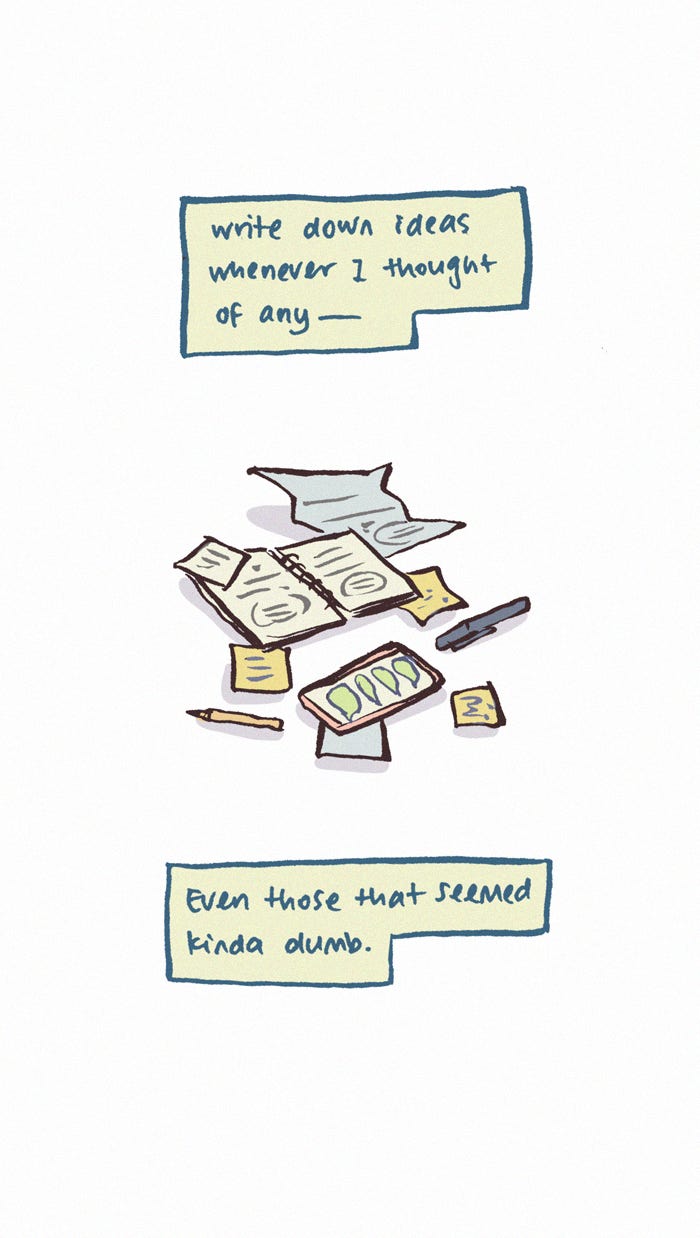 write down ideas
whenever I thought
of any —
Even those that seemed
kinda dumb.